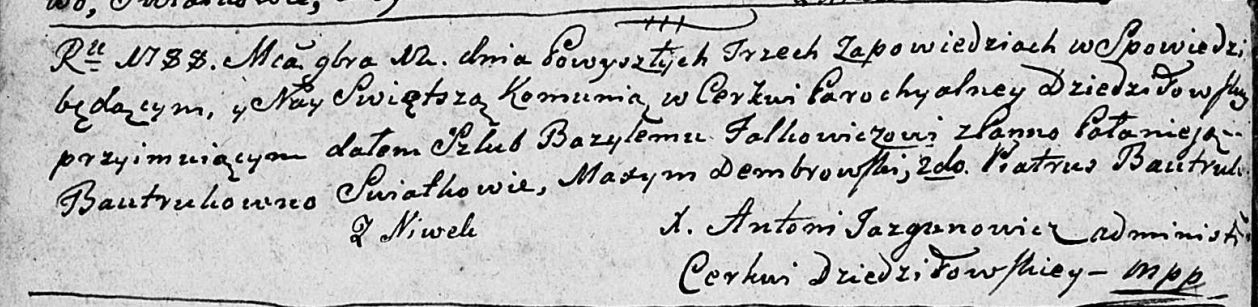 Ru 1788. Mca gbra 12. dnia Powyszłych Trzech Zapowiedziach w Spowiedzi
będącym, y Nay Świętszą Komunią w Cerkwi Parochyalney Dziedziłowskiey
przyimuiącym dałem Szlub Bazylemu Falkowiczowi z Panno Połanieją
Bautrukowno Swiatkowie, Maxym Dembrowski, 2do. Piatrus Bautruk
Z Niwek X. Antoni Jazgunowicz administr
Cerkwi Dziedziłowskiey – mpp